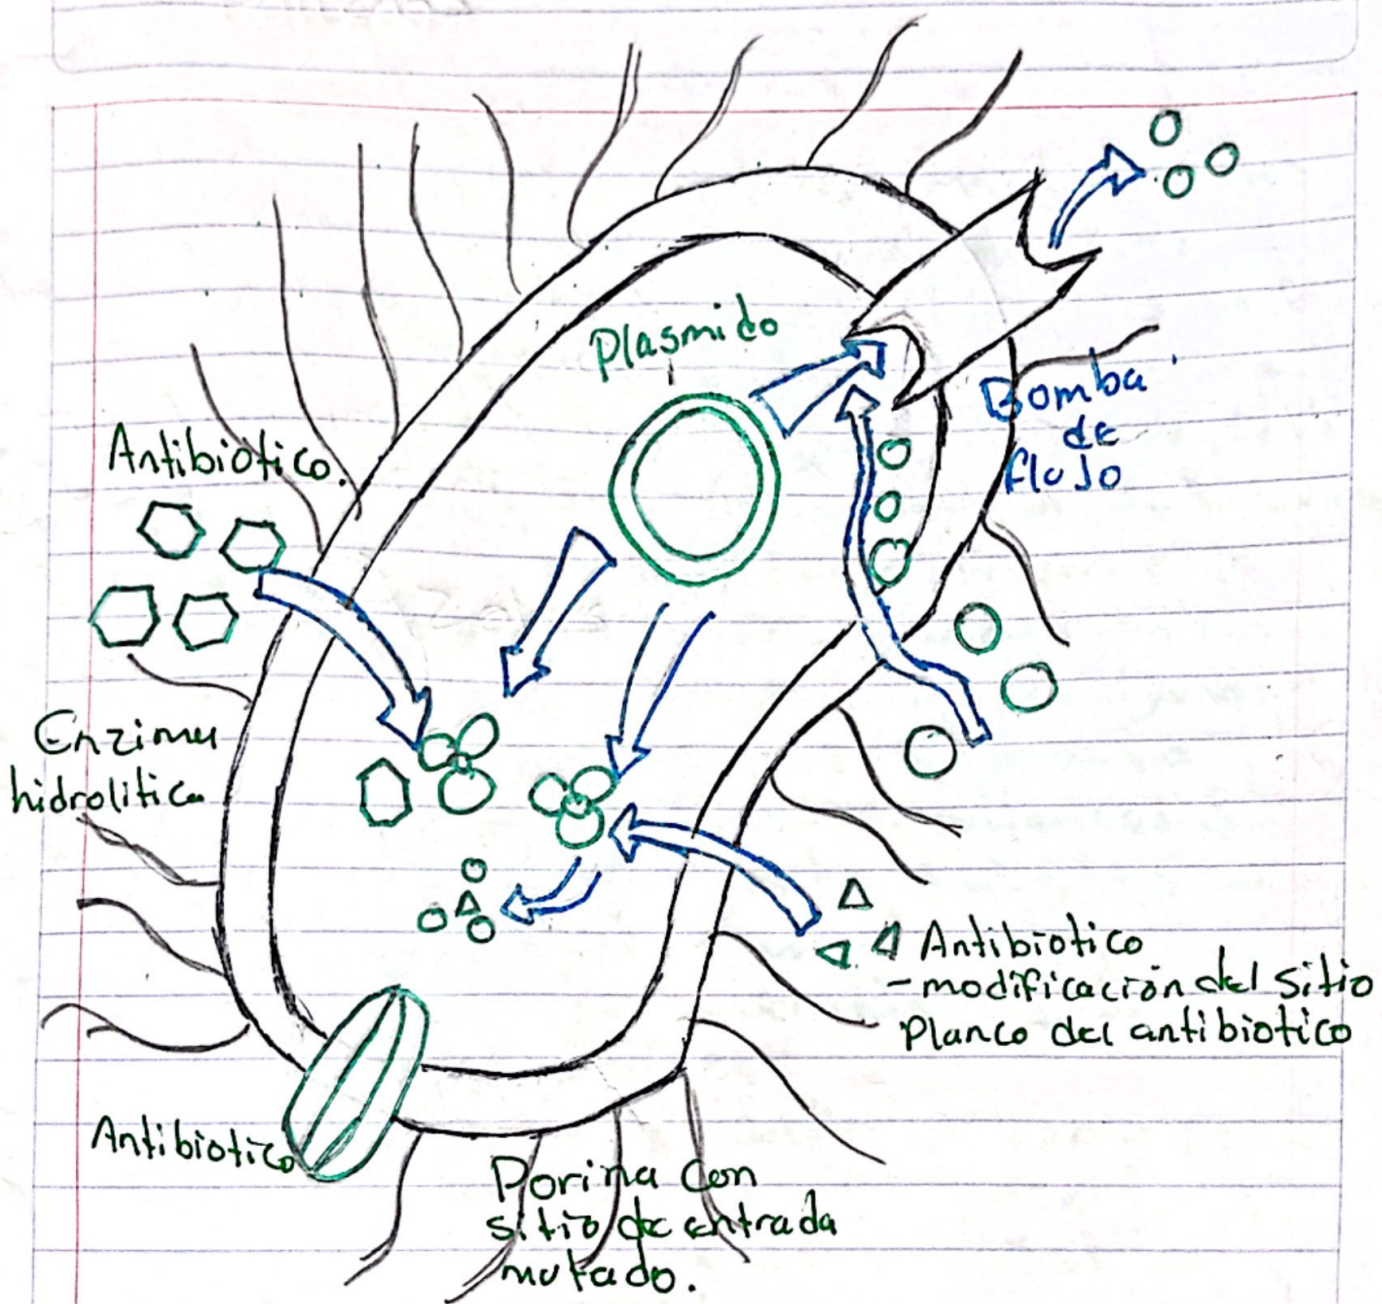 Plasmido
Bomba
de
flujo
Antibiotico.
Enzima
hidrolitica
Antibiotico
- modificación del sitio
planco del antibiotico
Antibiotico
Porina con
sitio de entrada
mutado.